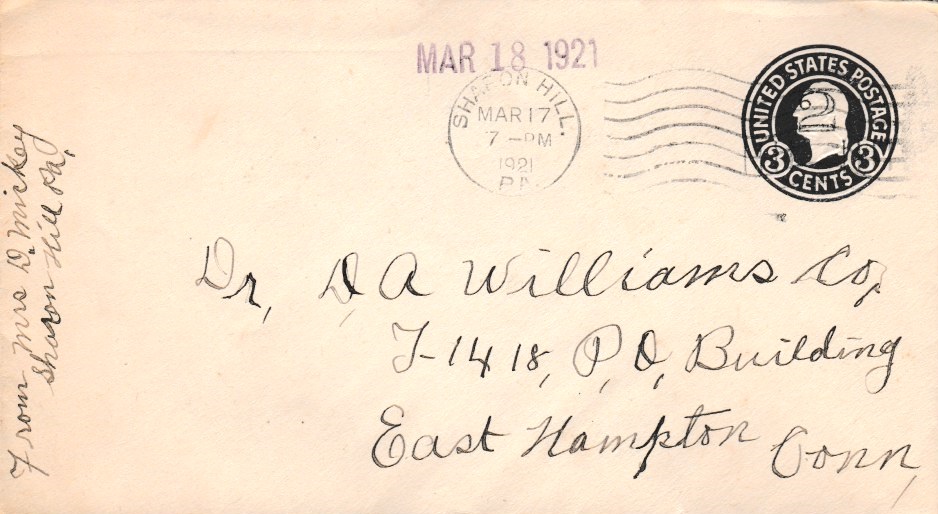 MAR 18 1921
SHARON HILL.
MAR 17
7 - PM
1921
PA
UNITED STATES POSTAGE
2
3 CENTS 3
Dr, D, A Williams Co,
T-1418, P, O, Building
East Hampton Conn,
From Mrs D. Mickey
Sharon Hill Pa,